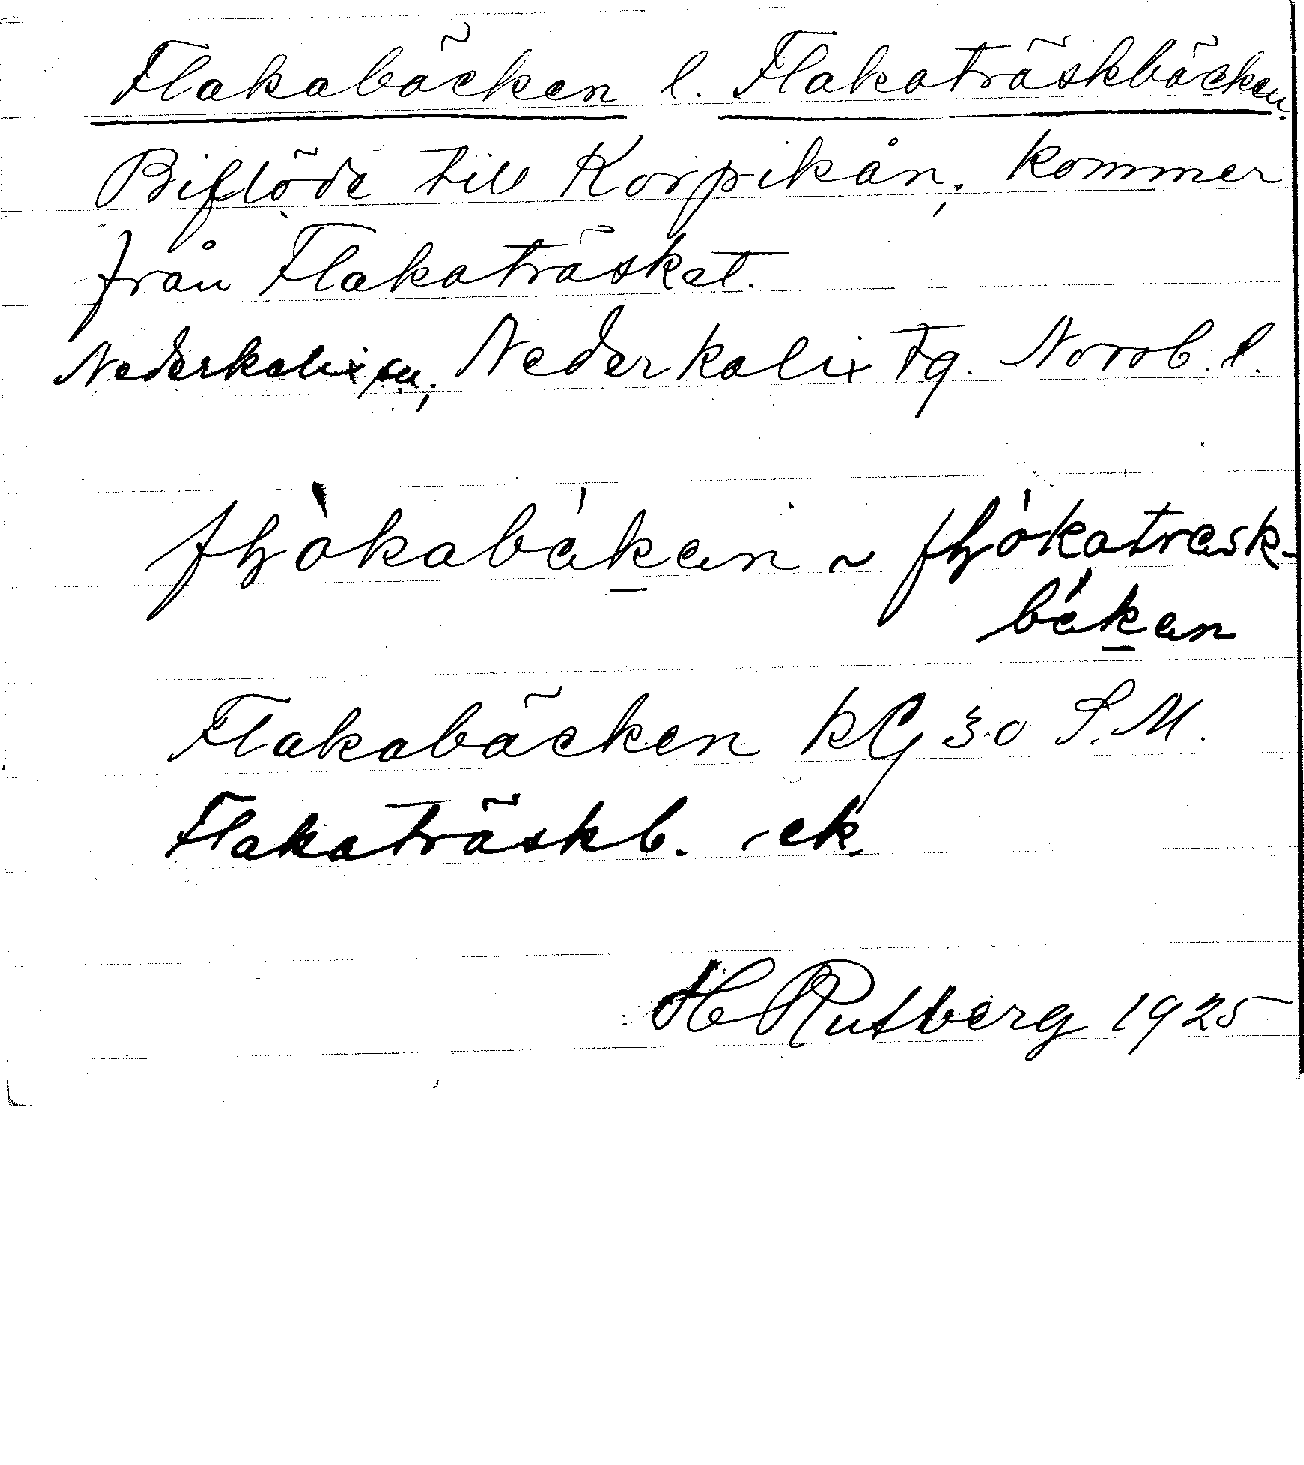 Flakabäcken l. Flakaträskbäcken.
Biflöde till Korpikån, kommer
från Flakaträsket.
Nederkalix sn, Nederkalix tg. Norrb. l.
Flakabäcken KG 30 S.M.
Flakaträskb. ek.
H Rutberg 1925